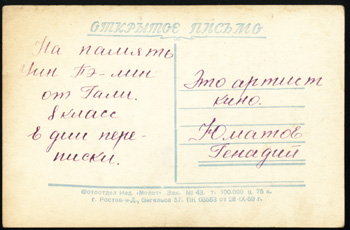 ОТКРЫТОЕ ПИСЬМО
На память
Чин Бэ-лин
от Гали.
8 класс
в дни пере-
писки.
Это артист
кино.
Юматов
Генадий
Фотоотдел изд. «Молот». Зак. № 43. т. 100000 ц. 75 к.
г. Ростов н-Д., Энгельса 57.